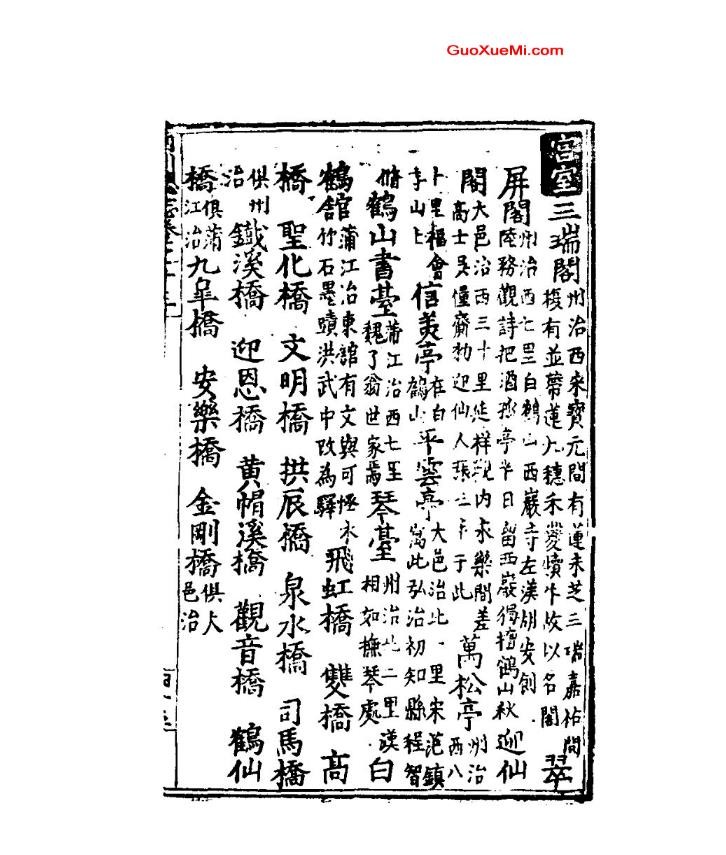 GuoXueMi.com
宮室 三瑞閣 州治西宋寶元間有蓮禾芝三瑞嘉祐間復有並蔕蓮九穗禾雙犢牛故以名閣 翠
屏閣 州治西七里白鶴山西巖寺左漢胡安創陸務觀詩把酒孤亭半日留西巖獨擅鶴山秋 迎仙
閣 大邑治西三十里延祥觀内永樂間差高士吳齋勑迎仙人張三丰于此 萬松亭 州治西八
十里福會寺山上 信美亭 在白鶴山 平雲亭 大邑治北一里宋范鎮寓此弘治初知縣程智
脩 鶴山書臺 蒲江治西七里魏了翁世家焉 琴臺 州治北二里漢相如撫琴處 白
鶴舘 蒲江治東舘有文與可怪木竹石墨蹟洪武中改為驛 飛虹橋 雙橋 高
橋 聖化橋 文明橋 拱辰橋 泉水橋 司馬橋
俱州治 鐵溪橋 迎恩橋 黄帽溪橋 觀音橋 鶴仙
橋 俱蒲江治 九皐橋 安樂橋 金剛橋 俱大邑治